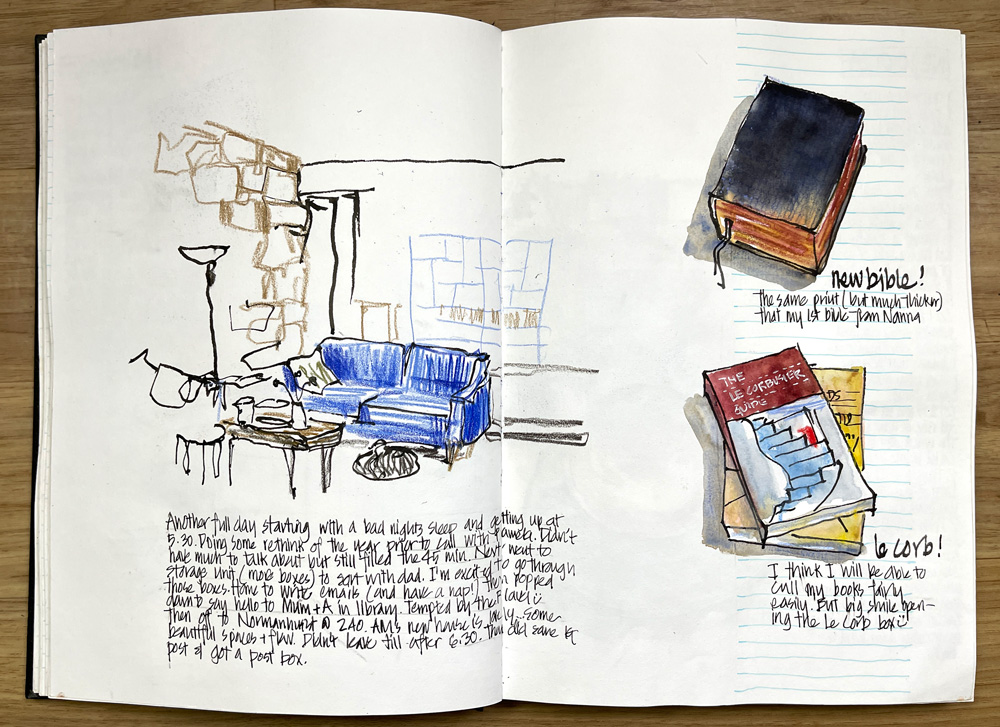 Another full day starting with a bad nights sleep and getting up at
5.30. Doing some rethink of the year prior to call with Pamela. Didn't
have much to talk about but still filled the 45 min. Next went to
storage unit (more boxes) to sort with dad. I'm excited to go through
those boxes. Home to write emails (and have a nap!) then popped
down to say hello to Mum + A in library. Tempted by the
then off to Normanhurst @ 240. AM's new house is lovely. Some
beautiful spaces + flow. Didn't leave till after 6.30. then did some
post & got a post box.
new bible!
the same print (but much thicker)
that my 1st bible from Nanna
THE
LE CORBUSIER
GUIDE
DS
le corb!
I think I will be able to
cull my books fairly
easily. But big smile open-
ing the Le Corb box